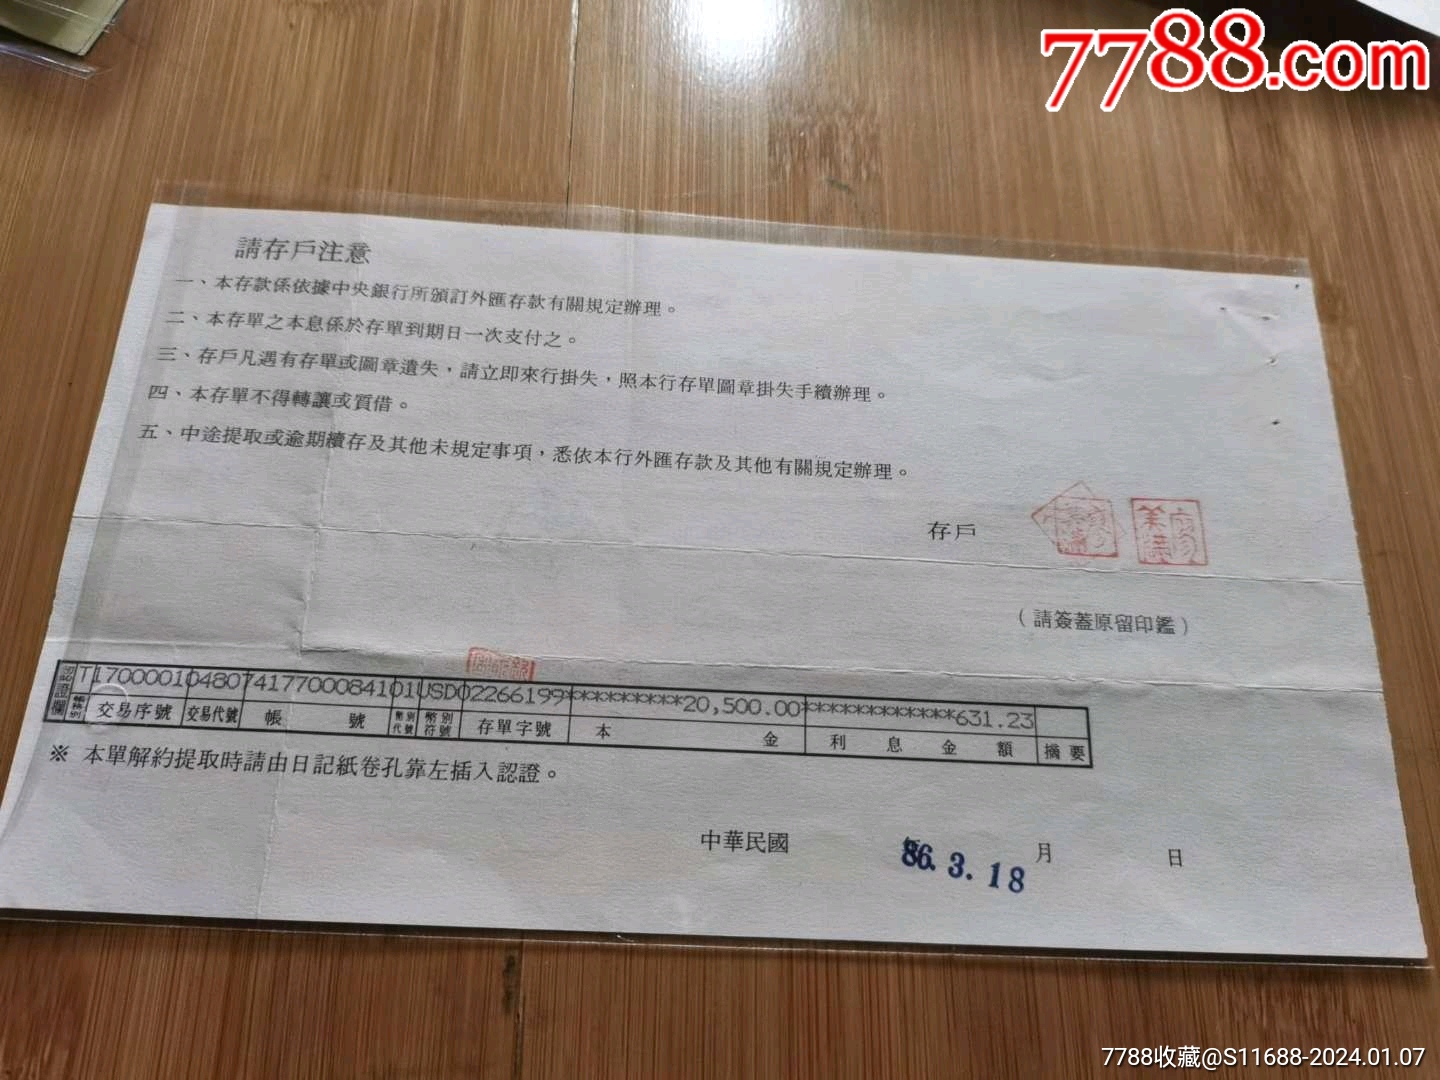 7788.com
請存戶注意
一、本存款係依據中央銀行所頒訂外匯存款有關規定辦理。
二、本存單之本息係於存單到期日一次支付之。
三、存戶凡遇有存單或圖章遺失，請立即來行掛失，照本行存單圖章掛失手續辦理。
四、本存單不得轉讓或質借。
五、中途提取或逾期續存及其他未規定事項，悉依本行外匯存款及其他有關規定辦理。
存戶
（請簽蓋原留印鑑）
認證欄 T 1700001 04807 41770008410 1 USD 02266199 **********20,500.00 *************631.23
帳務別 交易序號 交易代號 帳號 幣別代號 幣別符號 存單字號 本金 利息金額 摘要
※ 本單解約提取時請由日記紙卷孔靠左插入認證。
中華民國 年 月 日
86.3.18
7788收藏@S11688-2024.01.07